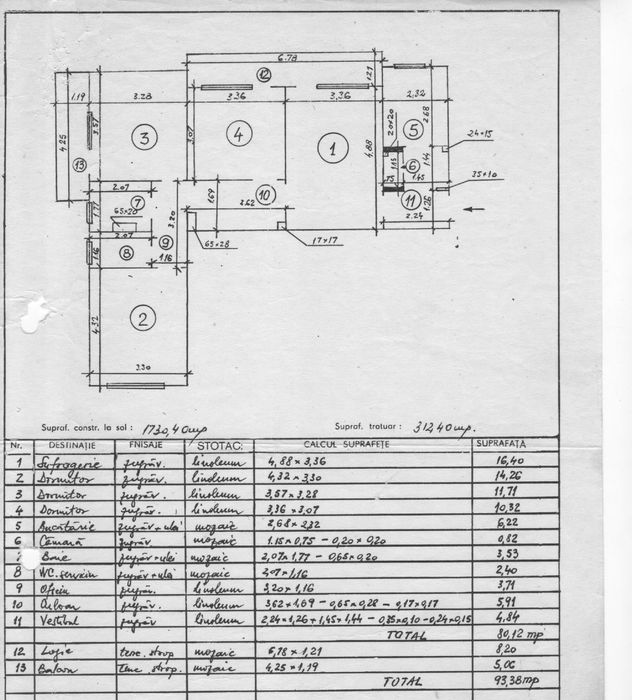 6.78
12
1,21
1.19
3.28
3.36
3.36
2.32
3.57
3.07
4.88
20x20
2.68
5
24x15
4.25
3
4
1
13
1.15
6
1.44
35x10
.75
1.45
2.07
7
1.69
10
3.62
11
1.26
1.77
65x20
3.20
2.24
2.07
9
8
1.16
1.16
65x28
17x17
2
4.32
3.30
Supraf. constr. la sol : 1730,40 mp
Supraf. trotuar : 312 40 mp.
Nr. DESTINAȚIE FNISAJE STOTAC: CALCUL SUPRAFEȚE SUPRAFAȚA
1 Sufragerie zugrăv. linoleum 4,88 x 3,36 16,40
2 Dormitor zugrăv. linoleum 4,32 x 3,30 14,26
3 Dormitor zugrăv. linoleum 3,57 x 3,28 11,71
4 Dormitor zugrăv. linoleum 3,36 x 3,07 10,32
5 Bucătărie zugrăv + ulei mozaic 2,68 x 2,32 6,22
6 Cămară zugrăv mozaic 1.15 x 0,75 - 0,20 x 0,20 0,82
Baie zugrăv + ulei mozaic 2,07 x 1,77 - 0,65 x 0,20 3,53
8 WC. serviciu zugrăv + ulei mozaic 2,07 x 1,16 2,40
9 Oficiu zugrăv. linoleum 3,20 x 1,16 3,71
10 zugrăv. linoleum 3,62 x 1,69 - 0,65 x 0,28 - 0,17 x 0,17 5,91
11 Vestibul zugrăv linoleum 2,24 x 1,26 + 1,45 x 1,44 - 0,35 x 0,10 - 0,24 x 0,15 4,84
TOTAL 80,12 mp
12 Logie tenc. strop mozaic 6,78 x 1,21 8,20
13 Balcon Tenc strop. mozaic 4,25 x 1.19 5,06
TOTAL 93,38 mp